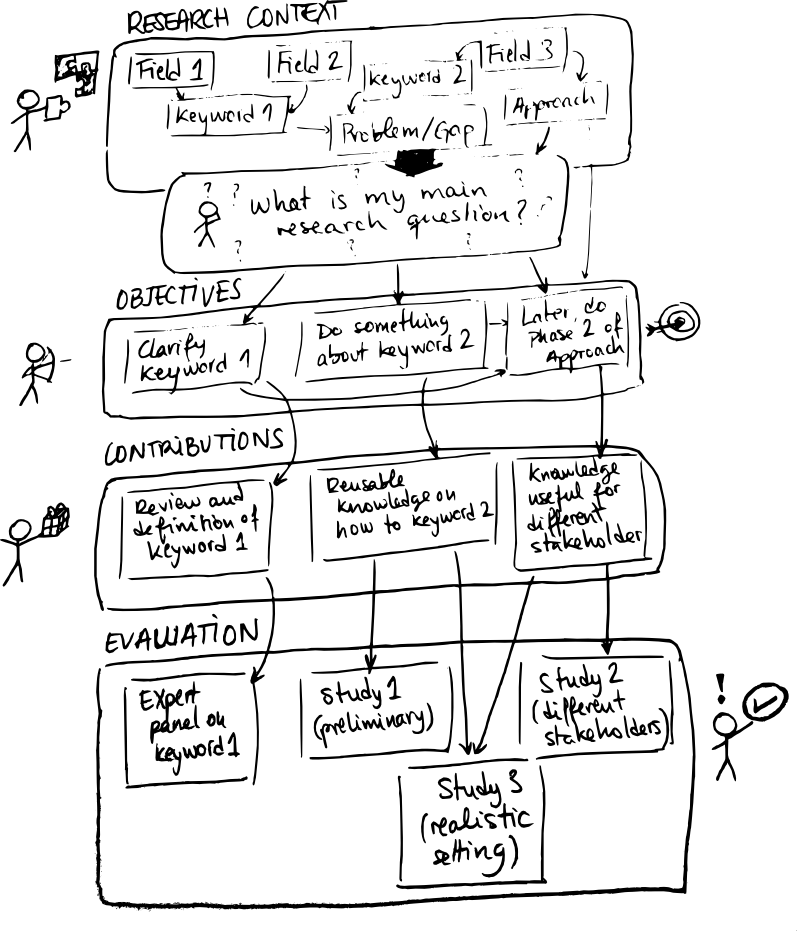 RESEARCH CONTEXT
Field 1
Field 2
Field 3
Keyword 2
Keyword 1
Approach
Problem/Gap
? ? ?
What is my main
research question? ?
? ? ?
OBJECTIVES
Clarify
Keyword 1
Do something
about keyword 2
Later, do
Phase 2 of
Approach
CONTRIBUTIONS
Review and
definition of
Keyword 1
Reusable
knowledge on
how to keyword 2
Knowledge
useful for
different
stakeholder
EVALUATION
Expert
panel on
keyword 1
Study 1
(preliminary)
Study 2
(different
stakeholders)
!
Study 3
(realistic
setting)